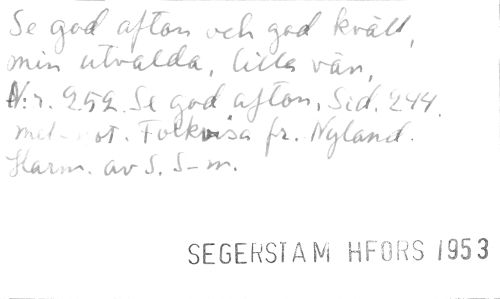 Se god afton och god kväll,
min utvalda, lilla vän,
N:r. 252. Se god afton, Sid. 244.
med not. Folkvisa fr. Nyland.
Harm. av S. S-m.
SEGERSTAM HFORS 1953